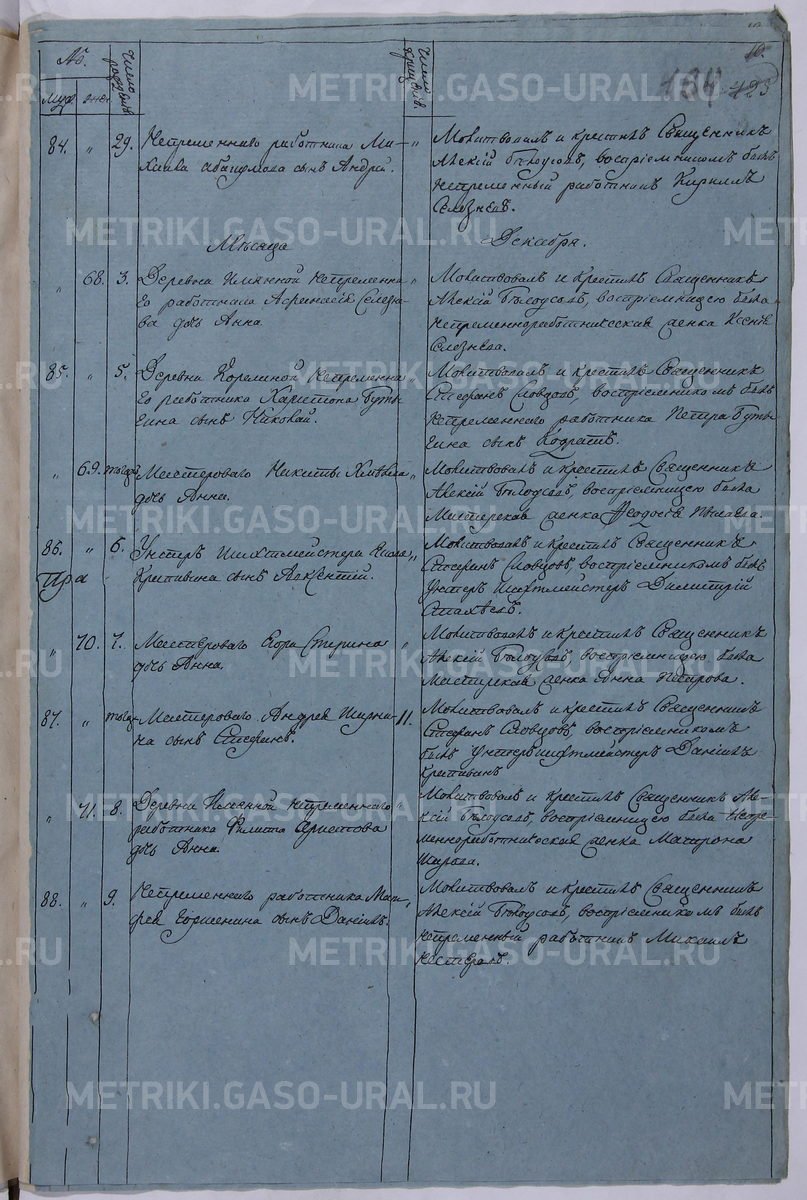 10.
№.
Число рожденія
Число крещенія.
134 423
Муж. жен.
84. „ 29. Непременнаго работника Ми-
хаила сынъ Андрей.
„ Молитвовалъ и крестилъ Священникъ
Алексій Бѣлоусовъ, воспріемникомъ былъ
непременный работникъ Кириллъ
Селезневъ.
Мѣсяца Декабря.
„ 68. 3. Деревни непременна-
го работника Афанасія Селезне-
ва дочь Анна.
„ Молитвовалъ и крестилъ Священникъ
Алексій Бѣлоусовъ, воспріемницею была
непременноработническая женка Ксенія
Селезнева.
85. „ 5. Деревни Корелиной непременна-
го работника Харитона Буты-
гина сынъ Николай.
„ Молитвовалъ и крестилъ Священникъ
Стефанъ Словцовъ, воспріемникомъ былъ
непременнаго работника Петра Буты-
гина сынъ Кодратъ.
„ 69. тогожъ Мастероваго Никиты
дочь Анна.
„ Молитвовалъ и крестилъ Священникъ
Алексій Бѣлоусовъ, воспріемницею была
Мастерская женка Феодосія
86. „ 6. Унтеръ Шихтмейстера
Крепивина сынъ Авксентій.
Пра
„ Молитвовалъ и крестилъ Священникъ
Стефанъ Словцовъ, воспріемникомъ былъ
Унтеръ Шихтмейстеръ Димитрій
„ 70. 7. Мастероваго Егора
дочь Анна.
„ Молитвовалъ и крестилъ Священникъ
Алексій Бѣлоусовъ, воспріемницею была
Мастерская женка Анна
87. „ тогожъ Мастероваго Андрея
сынъ Стефанъ.
11. Молитвовалъ и крестилъ Священникъ
Стефанъ Словцовъ, воспріемникомъ
былъ Унтеръ шихтмейстеръ Даніилъ
Крепивинъ
„ 71. 8. Деревни непременнаго
работника Филипа
дочь Анна.
„ Молитвовалъ и крестилъ Священникъ Але-
ксій Бѣлоусовъ, воспріемницею была Непре-
менноработническая женка Матрона
88. „ 9. Непременнаго работника Мат-
фея сынъ Даніилъ.
„ Молитвовалъ и крестилъ Священникъ
Алексій Бѣлоусовъ, воспріемникомъ былъ
непременный работникъ Михаилъ
Нестеровъ.
METRIKI.GASO-URAL.RU